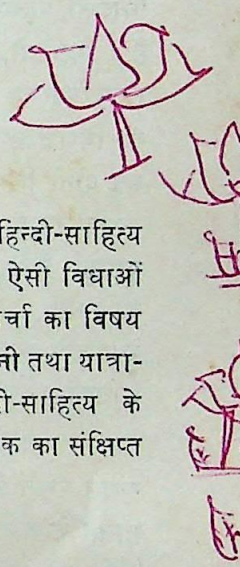 हिन्दी-साहित्य
ऐसी विधाओं
र्चा का विषय
नी तथा यात्रा-
ी-साहित्य के
क का संक्षिप्त